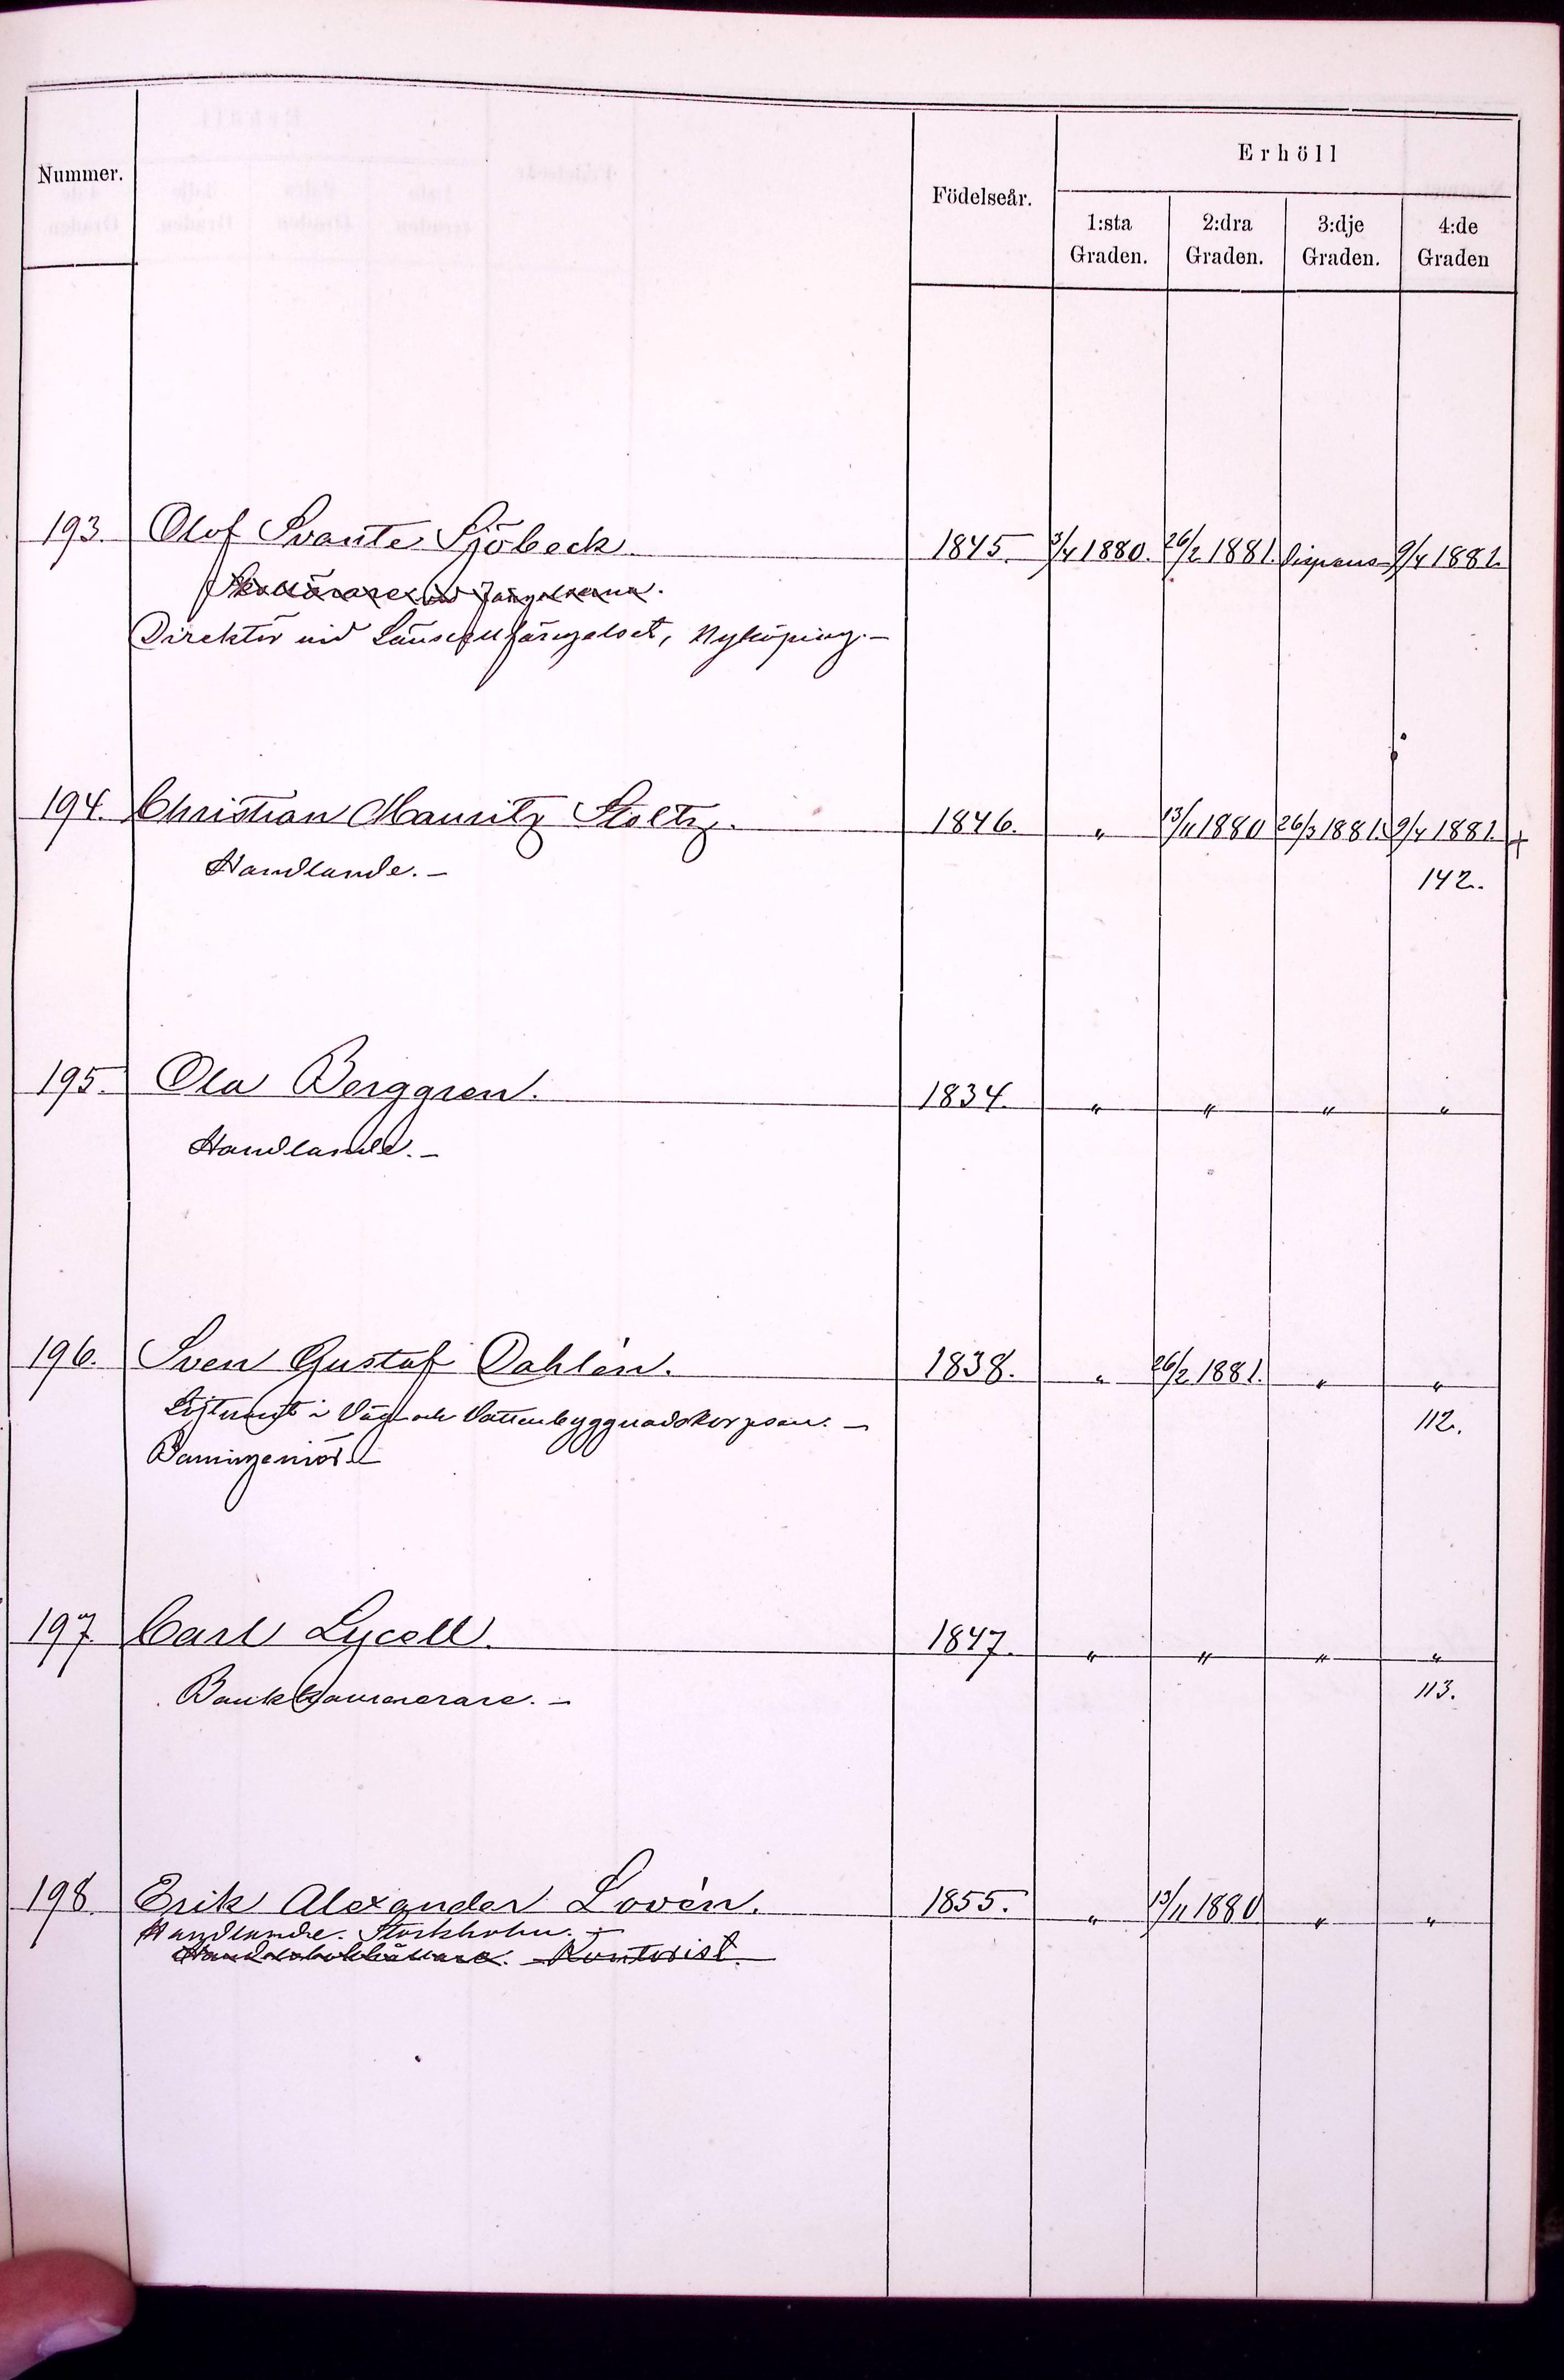 Nummer.
Födelseår.
Erhöll
1:sta Graden.
2:dra Graden.
3:dje Graden.
4:de Graden
193. Olof Svante Sjöbeck. 1845. 3/4 1880. 26/2 1881. Dispens 9/4 1881.
Skollärare vid fängelserna.
Direktör vid Länscellfängelset, Nyköping.–
194. Christian Mauritz Stoltz. 1846. " 13/11 1880 26/3 1881. 9/4 1881. +
Handlande.– 142.
195. Ola Berggren. 1834. " " " "
Handlande.–
196. Sven Gustaf Dahlén. 1838. " 26/2 1881. " "
Löjtnant i Väg- och Vattenbyggnadskorpsen.– 112.
Baningeniör.–
197. Carl Lycell. 1847. " " " "
Bankkamrerare.– 113.
198. Erik Alexander Lovén. 1855. " 13/11 1880 " "
Handlande. Stockholm.–
Handelsbokhållare. Kontorist.